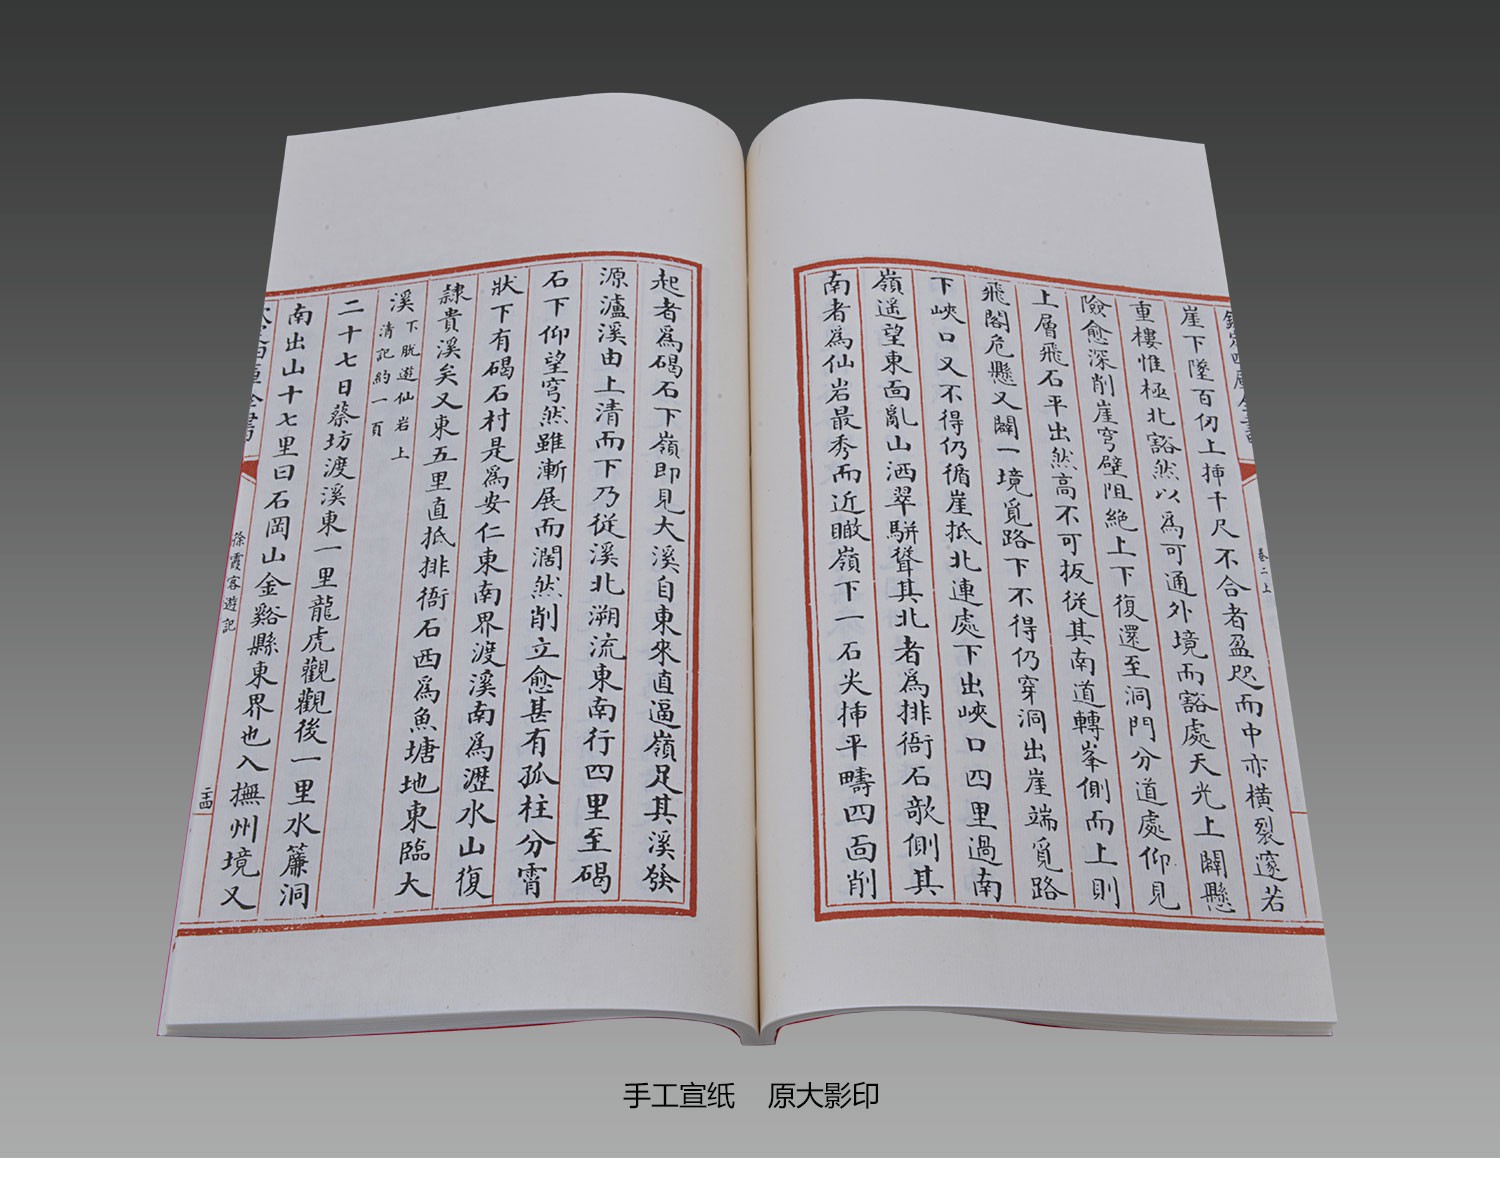 欽定四庫全書
卷二上
崖下墜百仞上揷千尺不合者盈咫而中亦橫裂邃若
重樓惟極北豁然以爲可通外境而豁處天光上闢懸
險愈深削崖穹壁阻絶上下復還至洞門分道處仰見
上層飛石平出然高不可扳從其南道轉峯側而上則
飛閣危懸又闢一境覓路下不得仍穿洞出崖端覓路
下峽口又不得仍循崖抵北連處下出峽口四里過南
嶺遥望東面亂山洒翠駢聳其北者爲排衙石欹側其
南者爲仙岩最秀而近瞰嶺下一石尖揷平疇四面削
起者爲碣石下嶺即見大溪自東來直逼嶺足其溪發
源瀘溪由上清而下乃從溪北溯流東南行四里至碣
石下仰望穹然雖漸展而濶然削立愈甚有孤柱分霄
狀下有碣石村是爲安仁東南界渡溪南爲瀝水山復
隸貴溪矣又東五里直抵排衙石西爲魚塘地東臨大
溪
下脫遊仙岩上
清記約一頁
二十七日蔡坊渡溪東一里龍虎觀觀後一里水簾洞
南出山十七里曰石岡山金谿縣東界也入撫州境又
欽定四庫全書
徐霞客遊記
二十四
手工宣纸 原大影印